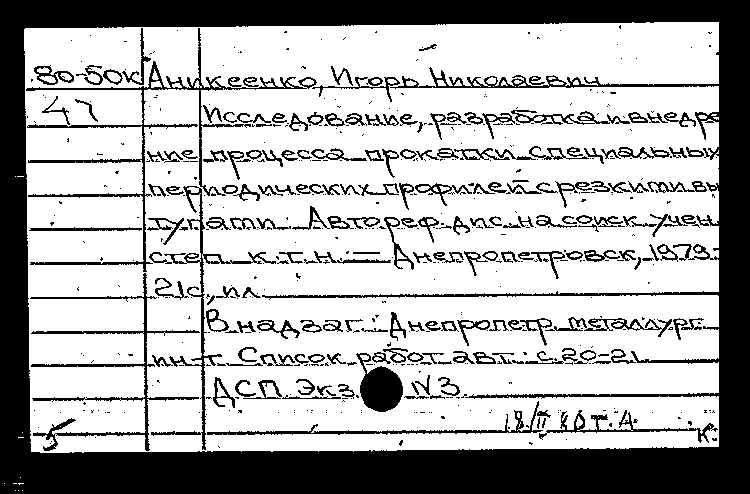 80-50к Аникеенко, Игорь Николаевич
47 Исследование, разработка и внедре
ние процесса прокатки специальных
периодических профилей с резкими вы
ступами. Автореф. дис. на соиск. учен.
степ. к.т.н. — Днепропетровск, 1979.
21с., ил.
В надзаг.: Днепропетр. металлург.
ин-т. Список работ авт.: с.20-21.
ДСП. Экз. №3
18/II 80 т. А.
5 К.